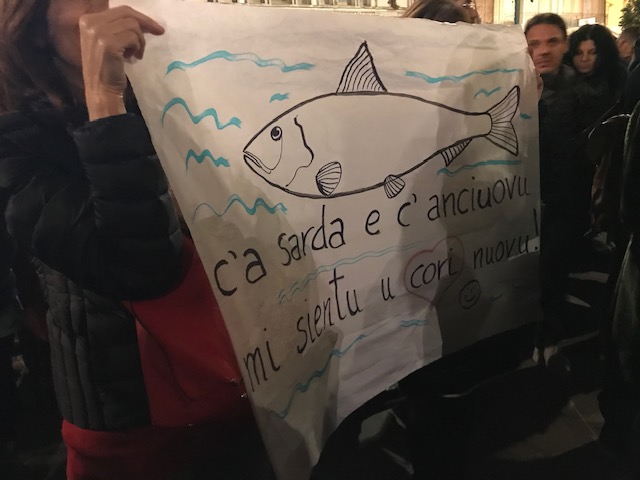 c'a sarda e c' anciuovu
mi sientu u cori nuovu!